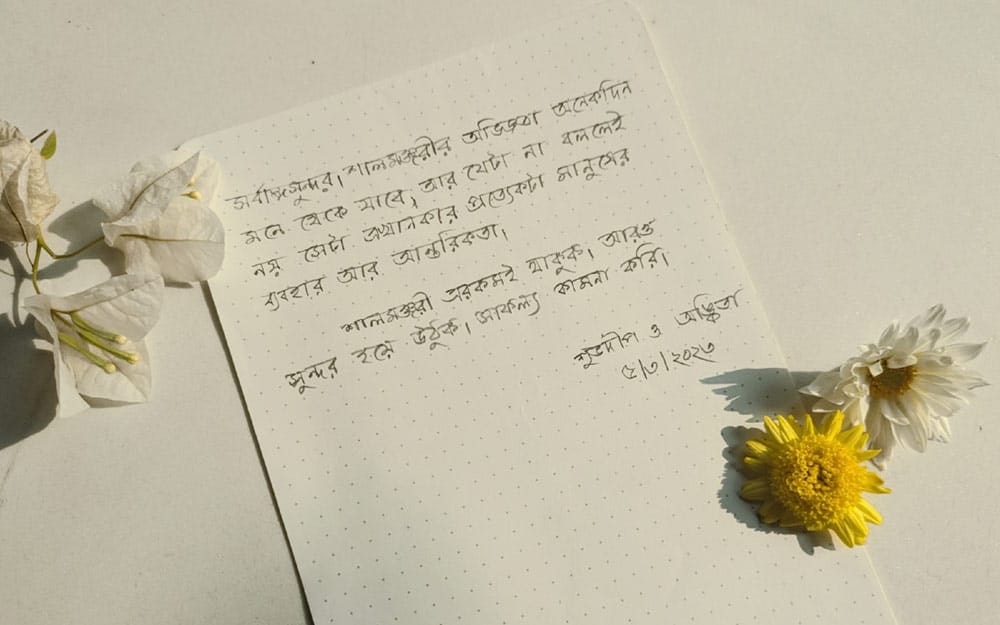 সর্বাঙ্গসুন্দর। শালমঞ্জরীর অভিজ্ঞতা অনেকদিন
মনে থেকে যাবে, আর যেটা না বললেই
নয় সেটা এখানকার প্রত্যেকটা মানুষের
ব্যবহার আর আন্তরিকতা।
শালমঞ্জরী এরকমই থাকুক। আরও
সুন্দর হয়ে উঠুক। সাফল্য কামনা করি।
শুভদীপ ও অঙ্কিতা
৫/৩/২০২৩